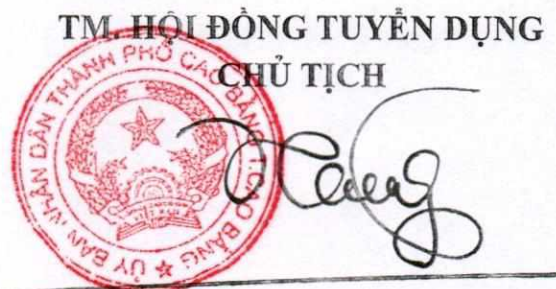 TM. HỘI ĐỒNG TUYỂN DỤNG
CHỦ TỊCH
ỦY BAN NHÂN DÂN THÀNH PHỐ CAO BẰNG T.CAO BẰNG
VIỆT NAM